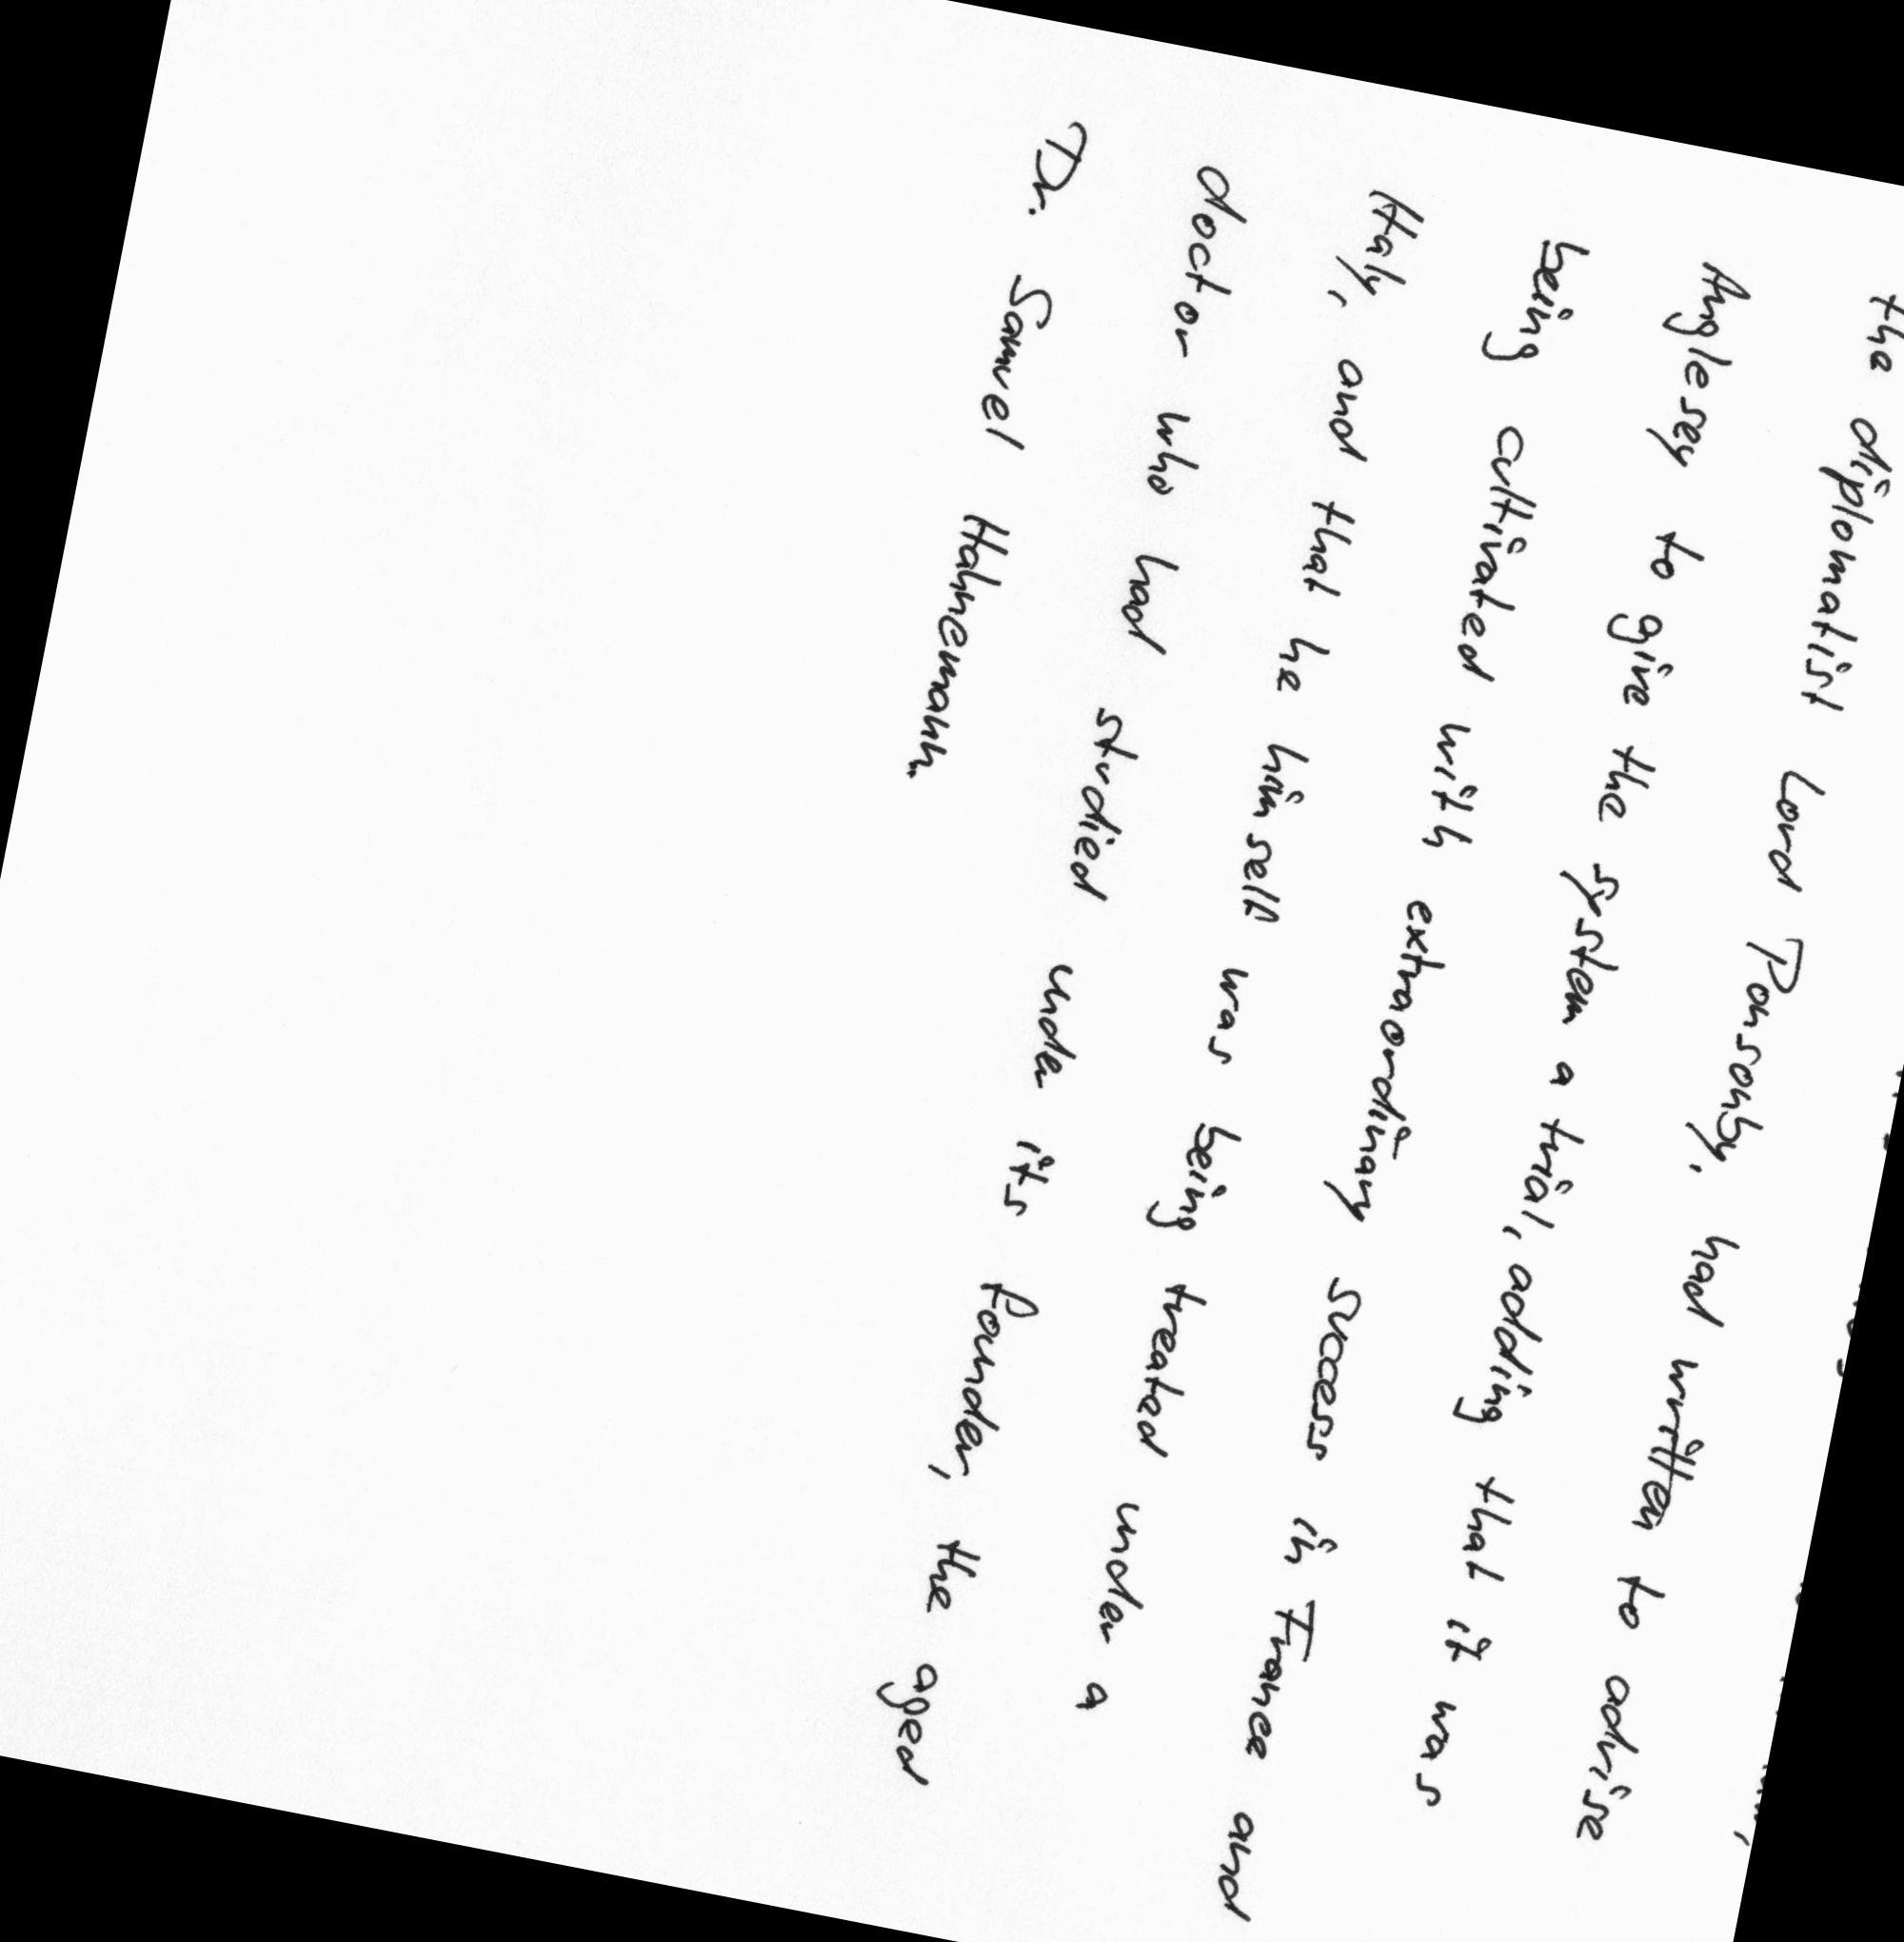 the diplomatist Lord Ponsonby, had written to advise
Anglesey to give the system a trial, adding that it was
being cultivated with extraordinary success in France and
Italy, and that he himself was being treated under a
doctor who had studied under its founder, the aged
Dr. Samuel Hahnemann.